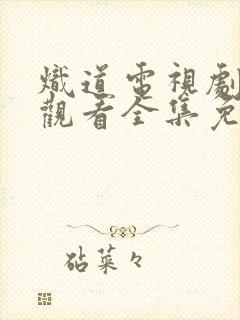 熾道電視劇
觀看全集免
砧菜々